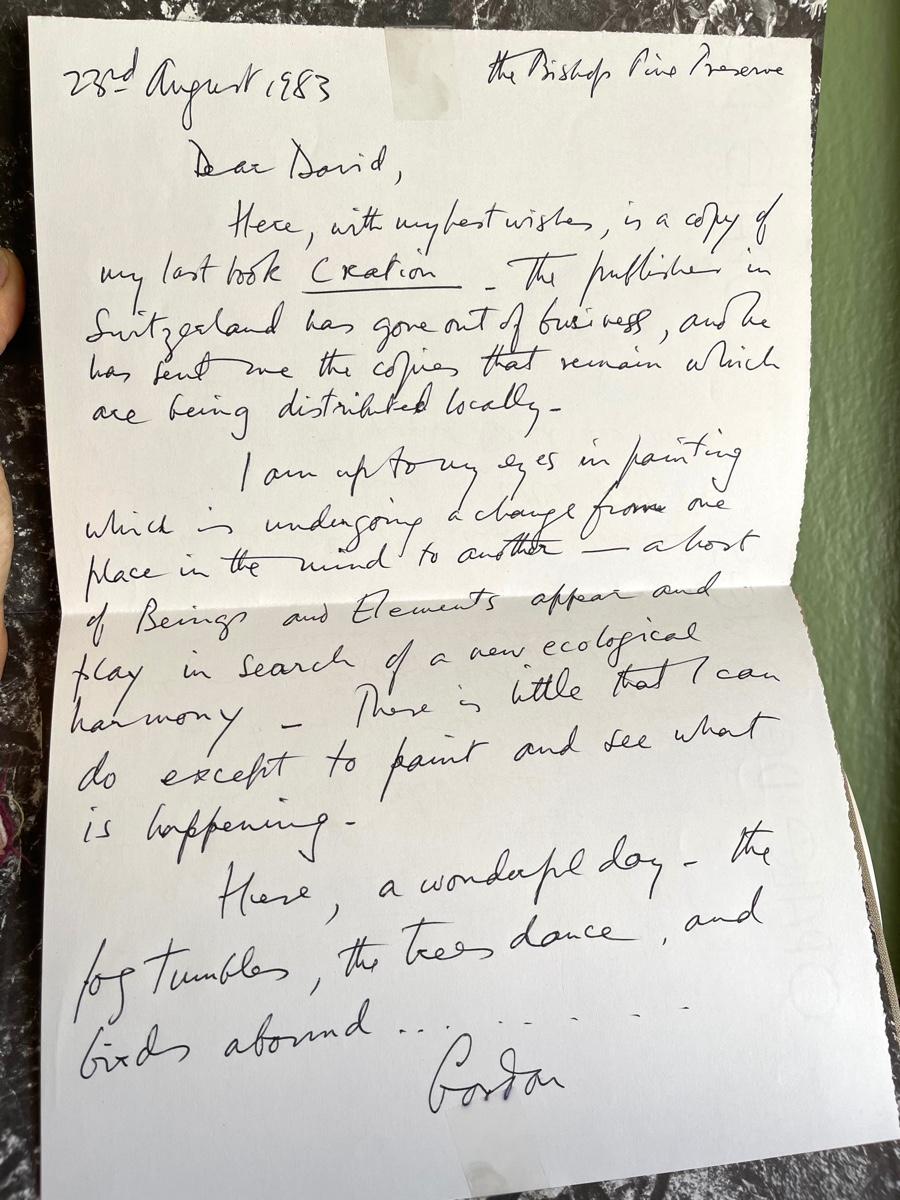 23rd August 1983
the Bishop Pine Preserve
Dear David,
Here, with my best wishes, is a copy of
my last book Creation - The publisher in
Switzerland has gone out of business, and he
has sent me the copies that remain which
are being distributed locally -
I am up to my eyes in painting
which is undergoing a change from one
place in the mind to another — a host
of Beings and Elements appear and
play in search of a new ecological
harmony - There is little that I can
do except to paint and see what
is happening -
Here, a wonderful day - the
fog tumbles, the trees dance, and
birds abound ... . . . . .
Gordon